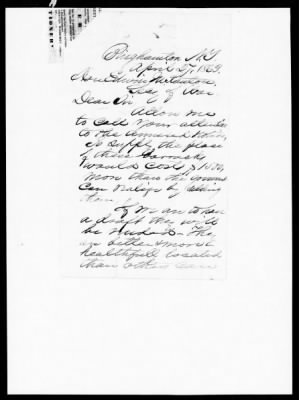 TIONER
Binghamton N.Y.
April 27, 1863.
Hon Edwin M Stanton
Secy of War
Dear Sir
Allow me
to call your attention
to the annexed
To supply the place
of these barracks
would cost $
more than the
can realize by
them
If we are to have
a draft they will
be needed - They
are better & more
healthfull located
than others can